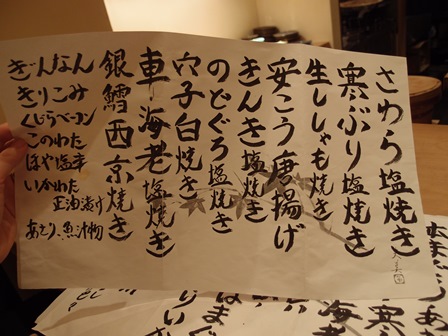 さわら塩焼き
寒ぶり塩焼き
生ししゃも焼き
安こう唐揚げ
きんき塩焼き
のどぐろ塩焼き
穴子白焼き
車海老塩焼き
銀鱈西京焼き
ぎんなん
きりこみ
くじらベーコン
このわた
ほや塩辛
いかわた
正油漬け
あとり、魚汁物